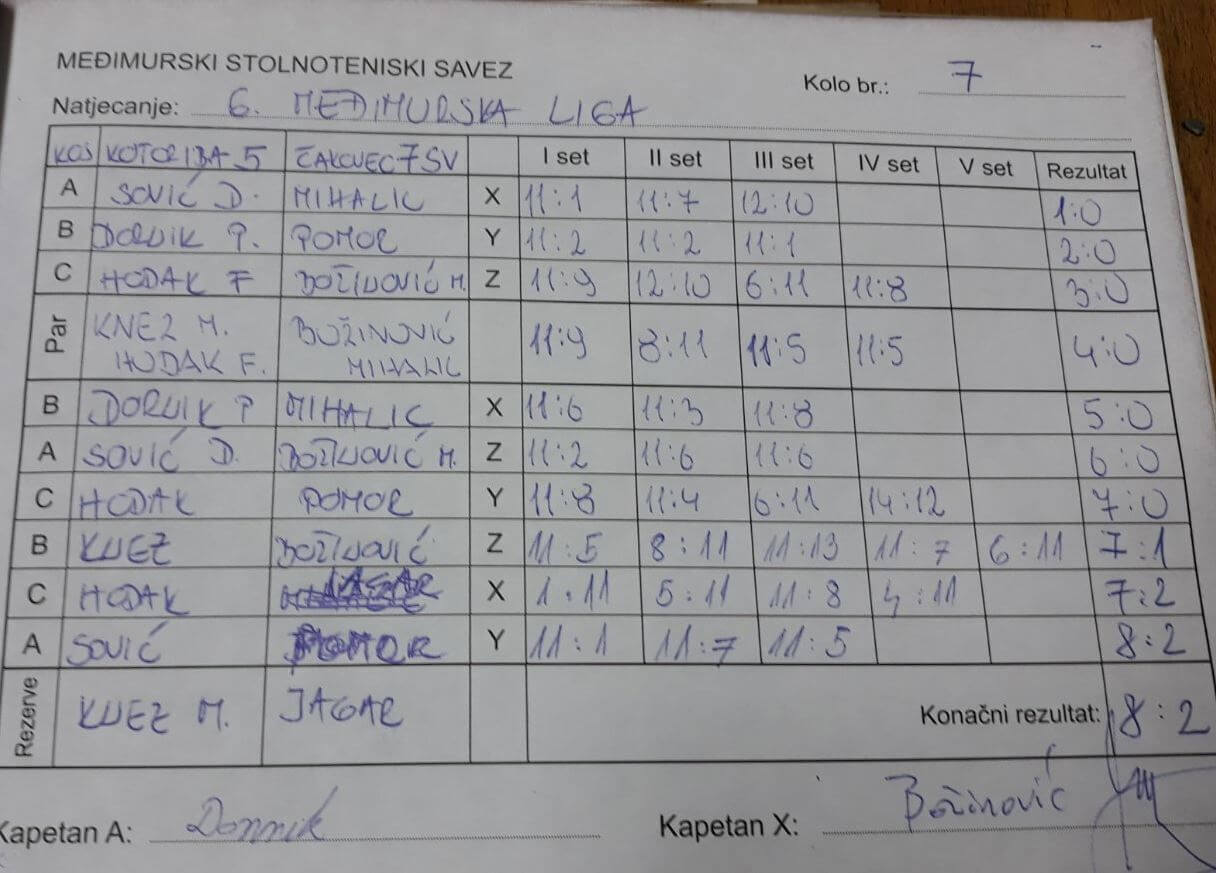 MEĐIMURSKI STOLNOTENISKI SAVEZ
Kolo br.: 7
Natjecanje: 6. MEĐIMURSKA LIGA
KOTORIBA 5 ČAKOVEC 7 SV I set II set III set IV set V set Rezultat
A SOVIĆ D. MIHALIC X 11:1 11:7 12:10 1:0
B DORNIK P. POMOR Y 11:2 11:2 11:1 2:0
C HODAK F BOŽINOVIĆ M. Z 11:9 12:10 6:11 11:8 3:0
Par KNEZ M. BOŽINOVIĆ 11:9 8:11 11:5 11:5 4:0
HODAK F. MIHALIC
B DORNIK P MIHALIC X 11:6 11:3 11:8 5:0
A SOVIĆ D. BOŽINOVIĆ M. Z 11:2 11:6 11:6 6:0
C HODAK POMOR Y 11:8 11:4 6:11 14:12 7:0
B KNEZ BOŽINOVIĆ Z 11:5 8:11 11:13 11:7 6:11 7:1
C HODAK JAGAR X 1:11 5:11 11:8 4:11 7:2
A SOVIĆ POMOR Y 11:1 11:7 11:5 8:2
Rezerve KNEZ M. JAGAR Konačni rezultat: 8:2
Kapetan A: Dornik Kapetan X: Božinović